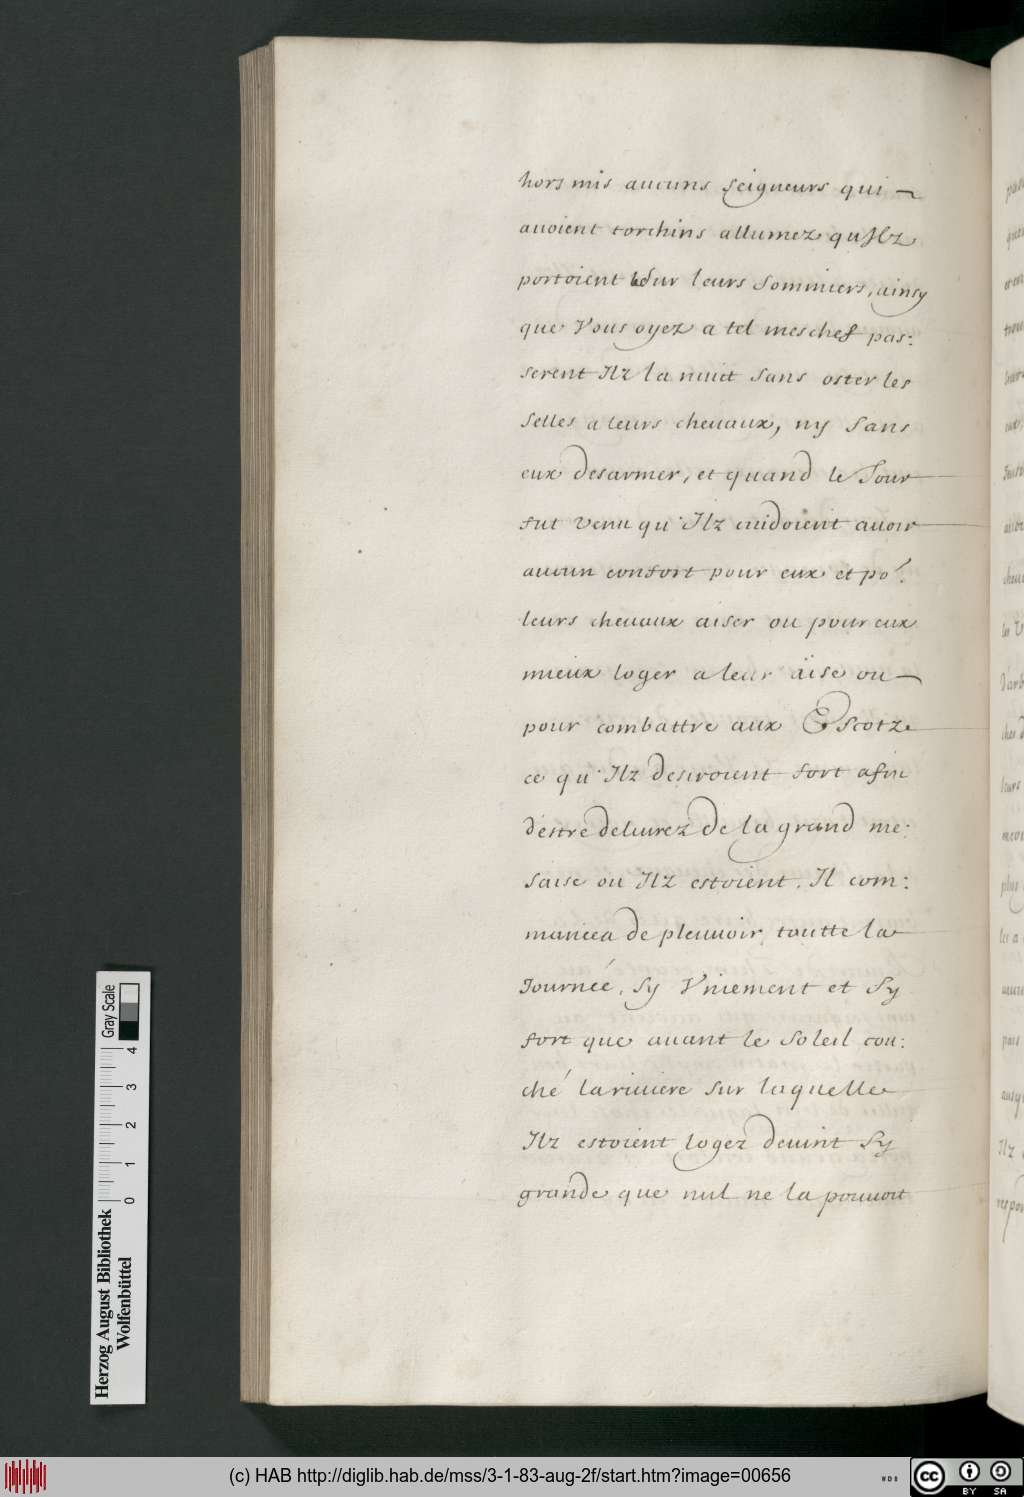 hors mis aucuns seigneurs qui
auoient torchins allumez qu'Ilz
portoient sur leurs sommiers, ainsy
que Vous oyez a tel meschef pas:
serent Ilz la nuict sans oster les
selles a leurs cheuaux, ny sans
eux desarmer, et quand le Jour
fut venu qu'Ilz cuidoient auoir
aucun confort pour eux et po.r
leurs cheuaux aiser ou pour eux
mieux loger a leur aise ou
pour combattre aux Escotz
ce qu'Ilz desiroient fort afin
d'estre deliurez de la grand me:
saise ou Ilz estoient. Il com:
mancea de pleuuoir toutte la
Journée, sy Vniement et sy
fort que auant le soleil cou:
ché la riuiere sur laquelle
Ilz estoient logez deuint sy
grande que nul ne la pouuoit
Herzog August Bibliothek
Wolfenbüttel
0 1 2 3 4
Gray Scale
(c) HAB http://diglib.hab.de/mss/3-1-83-aug-2f/start.htm?image=00656
WDB
cc BY SA